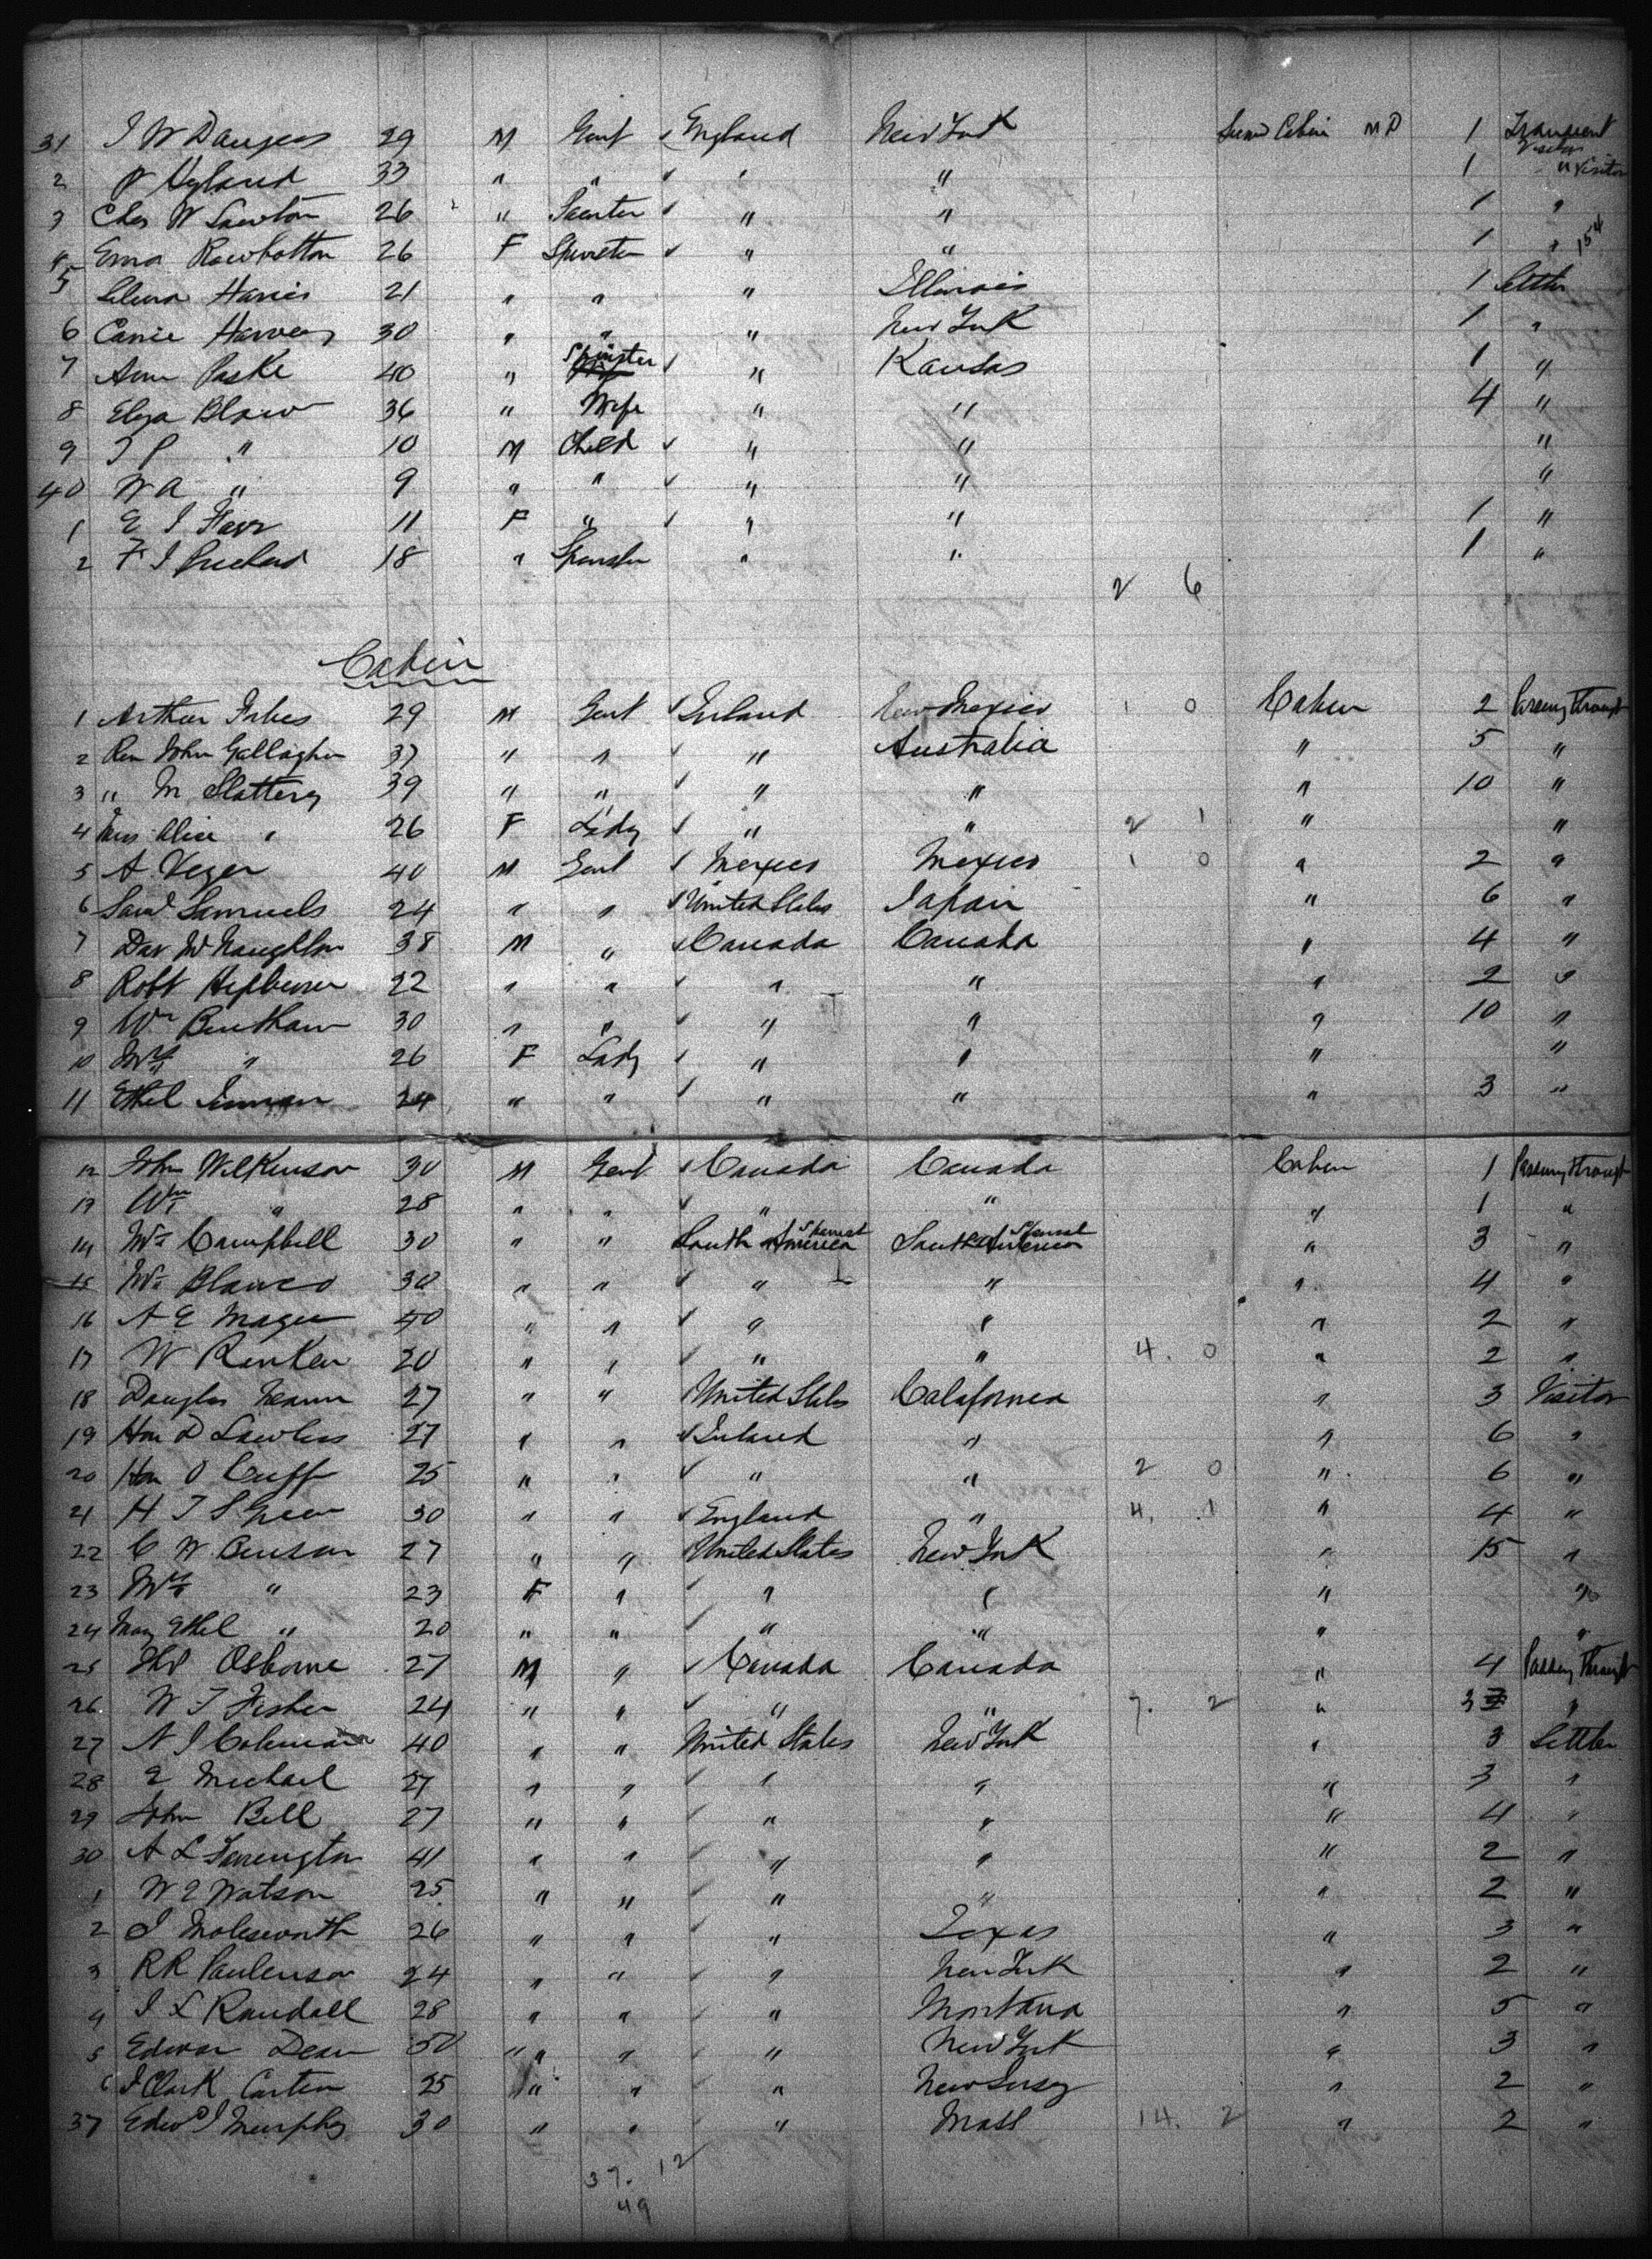 31 J W Dangers 29 M Gent England New York Second Cabin MD 1 Transient Visitor
2 P Hyland 33 " " " " 1 " Visitor
3 Chas W Lawton 26 " Painter " " 1 "
4 Emma Rowbotton 26 F Spinster " " 1 " 154
5 Selena Harris 21 " " " Illinois 1 Settler
6 Carrie Harvey 30 " " " New York 1 "
7 Ann Paske 40 " Spinster " Kansas 1 "
8 Eliza Blow 36 " Wife " " 4 "
9 J P " 10 M Child " " "
40 W A " 9 " " " " "
1 E J Farr 11 F " " " 1 "
2 F J 18 " Spinster " " 1 "
2 6
Cabin
1 Arthur Forbes 29 M Gent Ireland New Mexico 1 0 Cabin 2 Passing through
2 Rev John Gallagher 37 " " " Australia " 5 "
3 " M Slattery 39 " " " " " 10 "
4 Miss Alice " 26 F Lady " " 2 1 " "
5 A Veger 40 M Gent Mexico Mexico 1 0 " 2 "
6 Saml Samuels 24 " " United States Japan " 6 "
7 Dav McNaughton 38 M " Canada Canada " 4 "
8 Robt Hepburn 22 " " " " " 2 "
9 Wm Bentham 30 " " " " " 10 "
10 Mrs " 26 F Lady " " " "
11 Ethel Inman 24 " " " " " 3 "
12 John Wilkinson 30 M Gent Canada Canada Cabin 1 Passing through
13 Wm " 28 " " " " " 1 "
14 Mr Campbell 30 " " South America Spanish South America " 3 "
15 Mr Blanco 30 " " " " " 4 "
16 A E Magee 40 " " " " " 2 "
17 W Rinken 20 " " " " 4. 0 " 2 "
18 Douglas 27 " " United States California " 3 Visitor
19 Hon D Lawless 27 " " Ireland " " 6 "
20 Hon O Cuffe 25 " " " " 2 0 " 6 "
21 H J S Green 30 " " England " 4. 1 " 4 "
22 C W Benson 27 " " United States New York " 15 "
23 Mrs " 23 F " " " " "
24 May Ethel " 20 " " " " " "
25 Osborne 27 M " Canada Canada " 4 Passing through
26 W J Fisher 24 " " " " 7. 2 " 3 "
27 N J Coleman 40 " " United States New York " 3 Settler
28 E Michael 27 " " " " " 3 "
29 John Bell 27 " " " " " 4 "
30 A L Farrington 41 " " " " " 2 "
1 W E Watson 25 " " " " " 2 "
2 J Molesworth 26 " " " Texas " 3 "
3 R R Paulenson 24 " " " New York " 2 "
4 J L Randall 28 " " " Montana " 5 "
5 Edwar Dean 50 " " " " New York " 3 "
6 J Clark Carter 25 " " " New Jersey " 2 "
37 Edwd J Murphy 30 " " " Mass 14. 2 " 2 "
37. 12
49